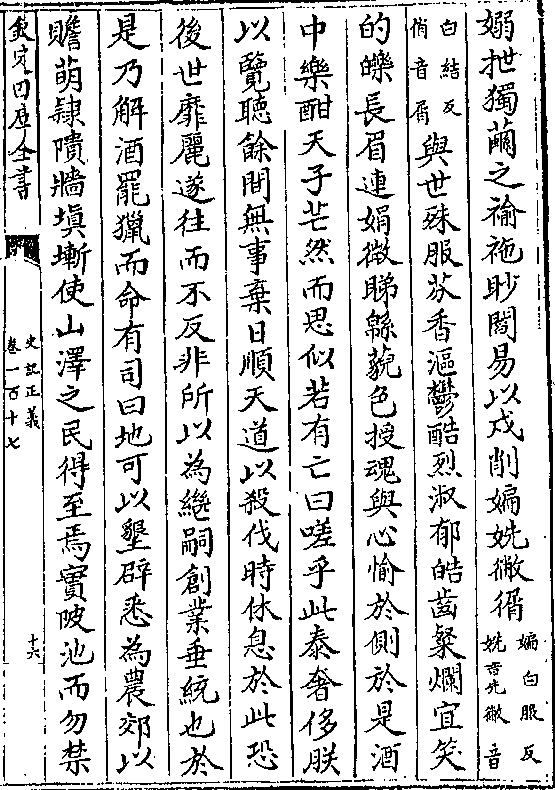 嫋抴獨繭之褕袘眇閻易以戍削媥姺徶㣯媥白服反姺音先徶音
白結反㣯音屑與世殊服芬香漚鬱酷烈淑郁皓齒粲爛宜笑
的皪長眉連娟微睇緜藐色授魂與心愉於側於是酒
中樂酣天子芒然而思似若有亡曰嗟乎此泰奢侈朕
以覽聽餘間無事棄日順天道以殺伐時休息於此恐
後世靡麗遂往而不反非所以為繼嗣創業垂統也於
是乃解酒罷獵而命有司曰地可以墾辟悉為農郊以
贍萌隸隤牆填塹使山澤之民得至焉實陂池而勿禁
欽定四庫全書
史記正義
卷一百十七
十六